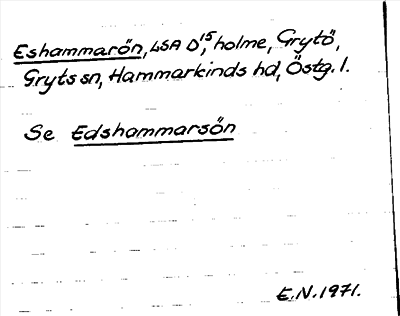 Eshammarön, LSA D¹⁵, holme, Grytö,
Gryts sn, Hammarkinds hd, Östg. l.
Se Edshammarsön
E.N. 1971.